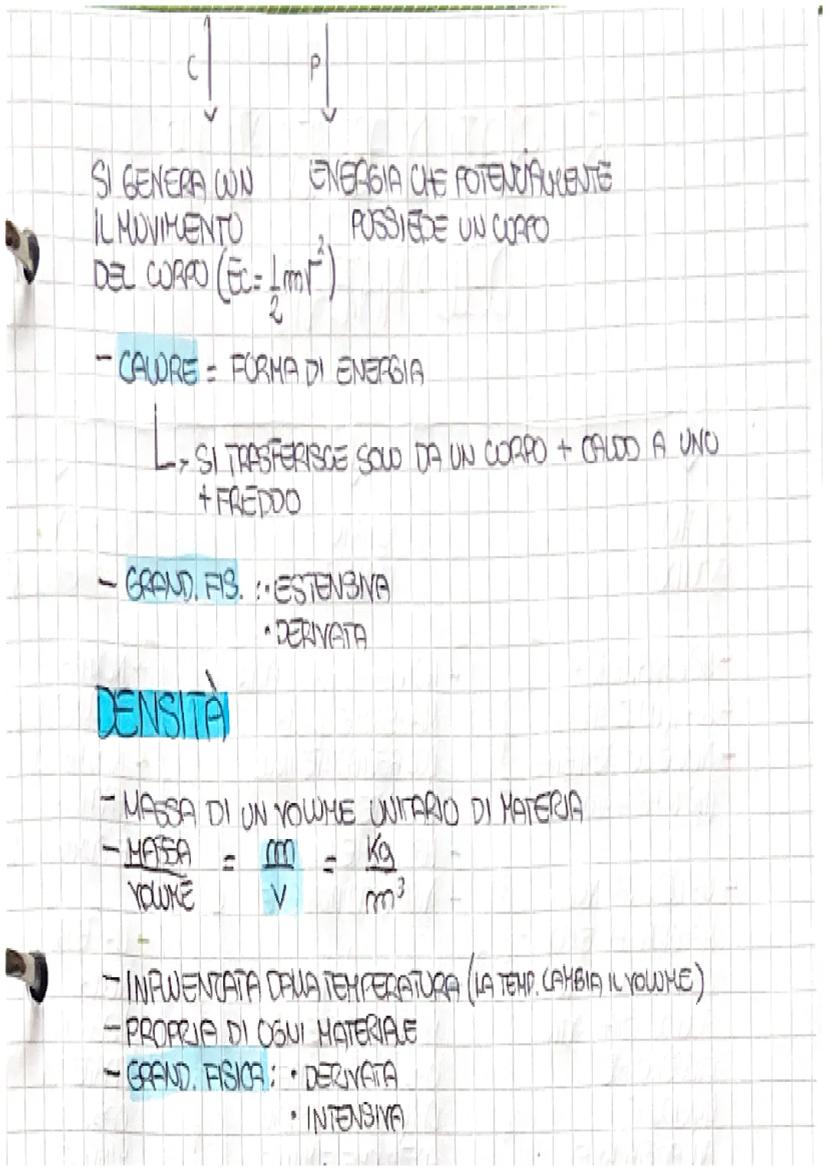 C P
SI GENERA CON ENERGIA CHE POTENZIALMENTE
IL MOVIMENTO POSSIEDE UN CORPO
DEL CORPO (Ec = 1/2 mv²)
- CALORE = FORMA DI ENERGIA
SI TRASFERISCE SOLO DA UN CORPO + CALDO A UNO
+ FREDDO
- GRAND. FIS. : • ESTENSIVA
• DERIVATA
DENSITÀ
- MASSA DI UN VOLUME UNITARIO DI MATERIA
- MASSA/VOLUME = m/V = Kg/m³
- INFLUENZATA DALLA TEMPERATURA (LA TEMP. CAMBIA IL VOLUME)
- PROPRIA DI OGNI MATERIALE
- GRAND. FISICA : • DERIVATA
• INTENSIVA